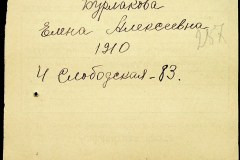 Бурлакова
Елена Алексеевна
1910
257
4 Слободская - 83.